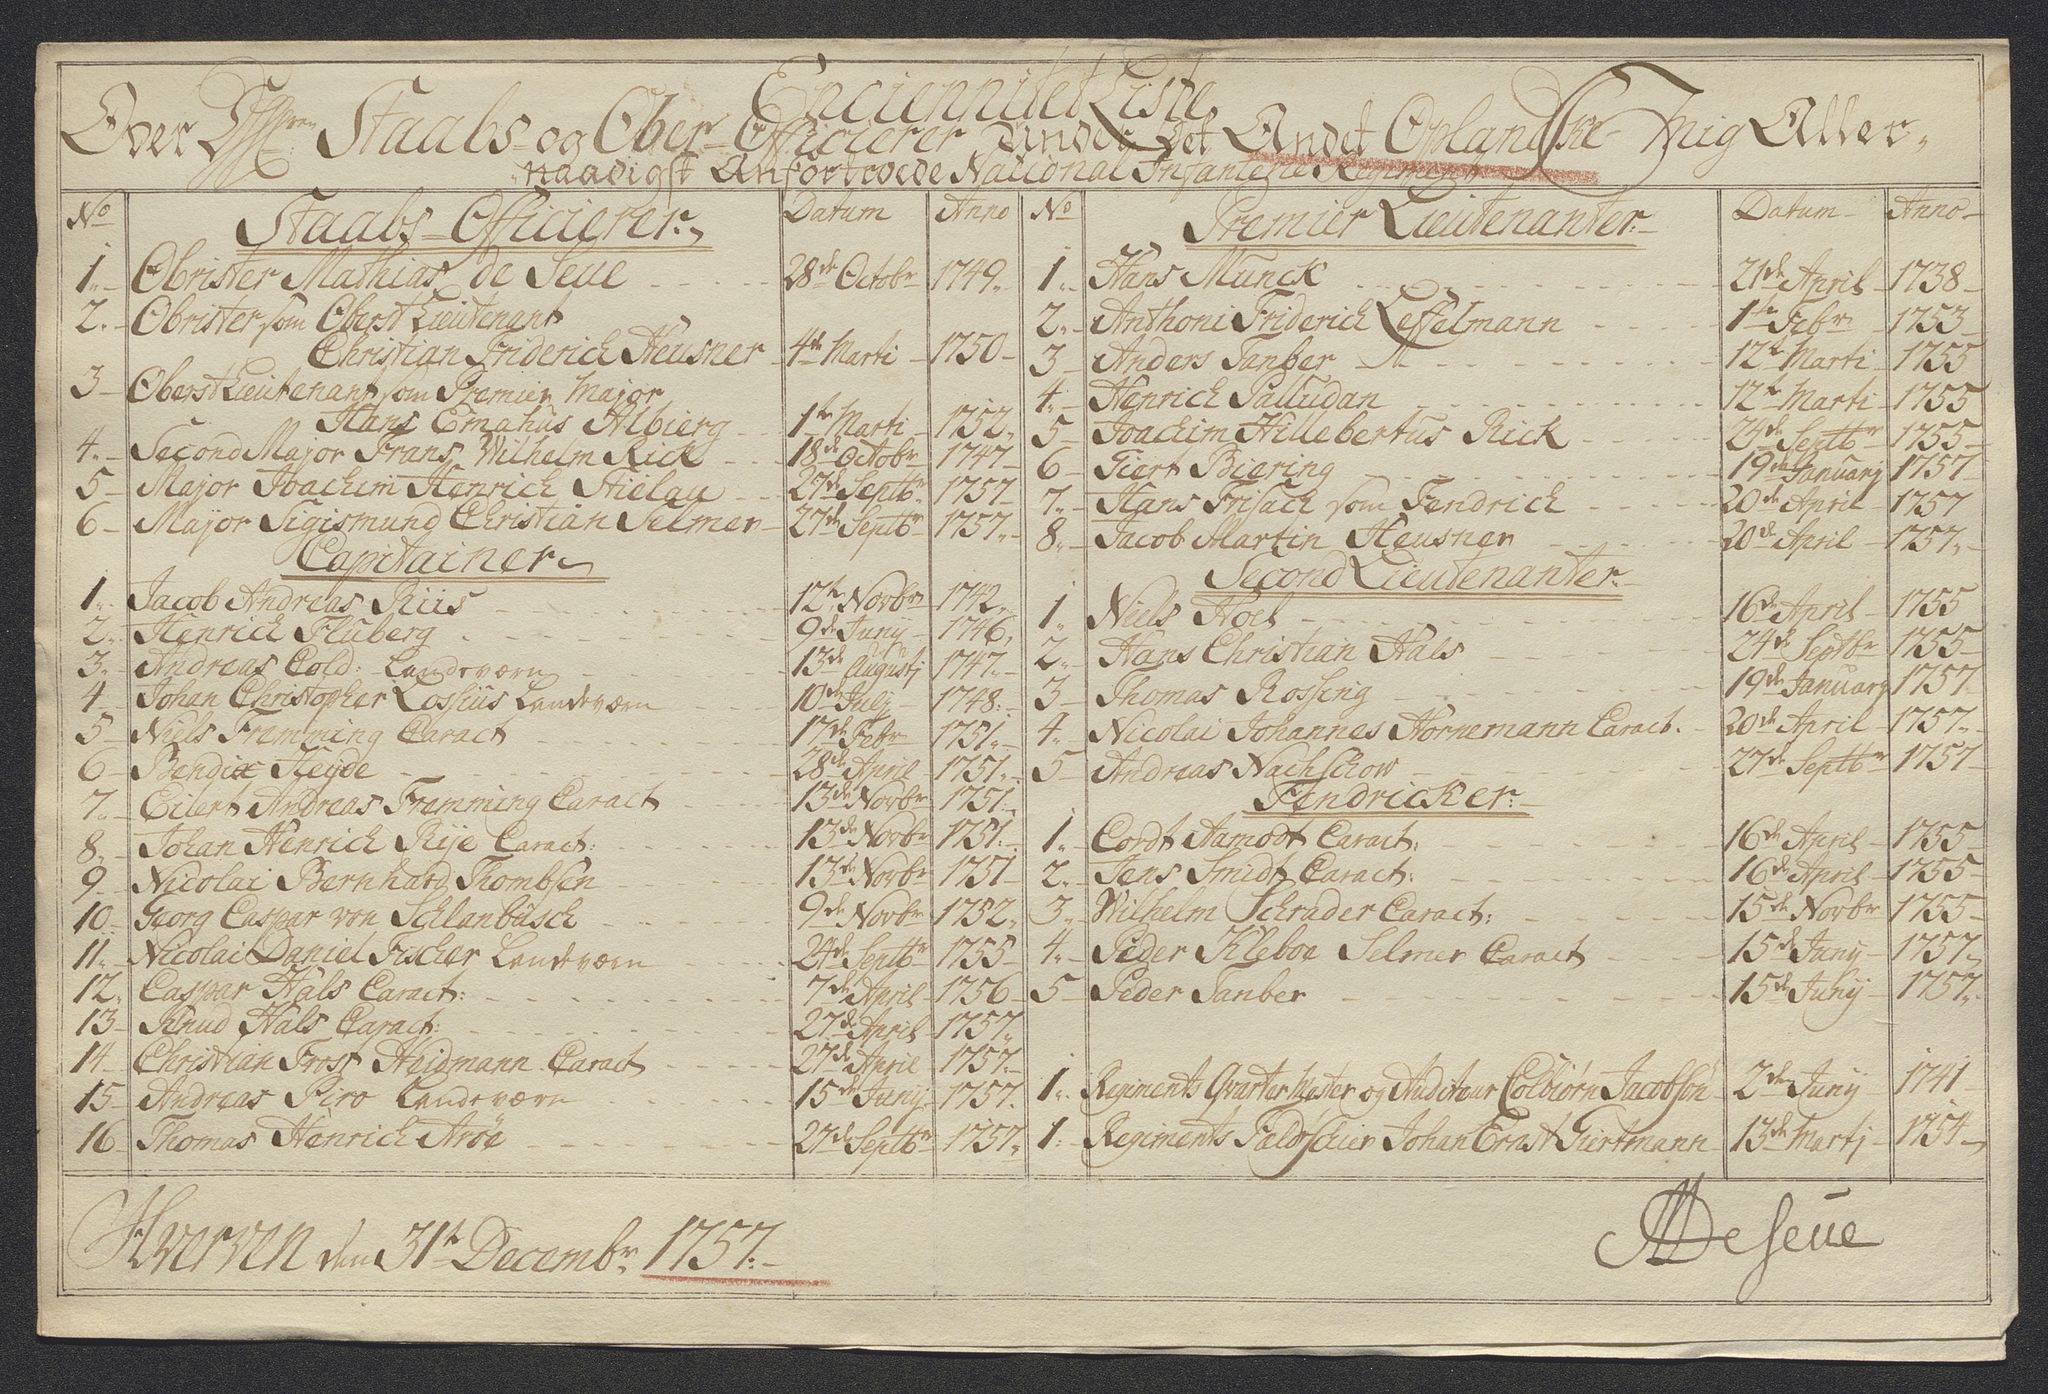 Enciennitet Liste
Over Staabs og Ober Officierer Under Det Andet Oplandske Mig Aller-
naadigst Anfortroede National Infanterie Regiment
No Staabs-Officierer. Datum Anno
1. Obrister Mathias de Seue 28de Octobr 1749.
2. Obrister som Oberst Lieutenant
Christian Friderich Heusner 4de Marti 1750
3 Oberst Lieutenant som Premier Major
Hans Emahus Albierg 1te Marti 1752.
4. Second Major Frans Wilhelm Rick 18de Octobr 1747
5 Major Joachim Henrich Stielau 27de Septbr 1757
6 Major Sigismund Christian Selmer 27de Septbr 1757.
Capitainer
1. Jacob Andreas Riis 12te Novbr 1742.
2. Henrich Fluberg 9de Junij 1746.
3. Andreas Cold: Landeværn 13de Augustj 1747.
4 Johan Christopher Lossius Landeværn 10de Julj 1748.
5 Niels Fremming Caract 17de Febr 1751.
6 Bendix Heyde 28de April 1751.
7. Eilert Andreas Fremming Caract 13de Novbr 1751.
8. Johan Henrich Rije Caract: 13de Novbr 1751.
9 Nicolai Bernhard Thombsen 13de Novbr 1751
10 Georg Caspar von Schlanbusch 9de Novbr 1752.
11. Nicolai Daniel Fischer Landeværn 24de Septbr 1755
12. Caspar Hals Caract: 7de April 1756
13 Knud Hals Caract: 27de April 1757.
14 Christian Frost Heidmann Caract 27de April 1757.
15 Andreas Piro Landeværn 15de Junij 1757.
16 Thomas Henrich Arøe 27de Septbr 1757.
No Premier Lieutenanter. Datum Anno
1. Hans Munck 21de April 1738
2. Anthoni Friderich Leffelmann 1te Febr 1753
3 Anders Tanber 12te Marti 1755
4. Henrich Palludan 12te Marti 1755
5 Joachim Hillebertus Rick 24de Septbr 1755
6 Giert Biering 19de Januarj 1757
7. Hans Frisach som Fendrich 20de April 1757
8. Jacob Martin Heusner 20de April 1757.
Second Lieutenanter.
1. Niels Hoel 16de April 1755
2. Hans Christian Hals 24de Septbr 1755
3 Thomas Rossing 19de Januarj 1757
4. Nicolai Johannes Hornemann Caract. 20de April 1757.
5 Andreas Nachschow 27de Septbr 1757
Fendricker.
1. Cordt Aamodt Caract: 16de April 1755
2. Jens Smidt Caract: 16de April 1755
3. Wilhelm Schrader Caract: 15de Novbr 1755
4. Peder Kleboe Selmer Caract 15de Junij 1757.
5 Peder Tanber 15de Junij 1757.
1. Regiments Qvarter Mester og Auditeur Colbiørn Jacobsøn 2den Junij 1741
1. Regiments Feldtschier Johan Ernst Giertmann 13de Martj 1754
Hverven den 31te Decembr. 1757.
MDeSeue